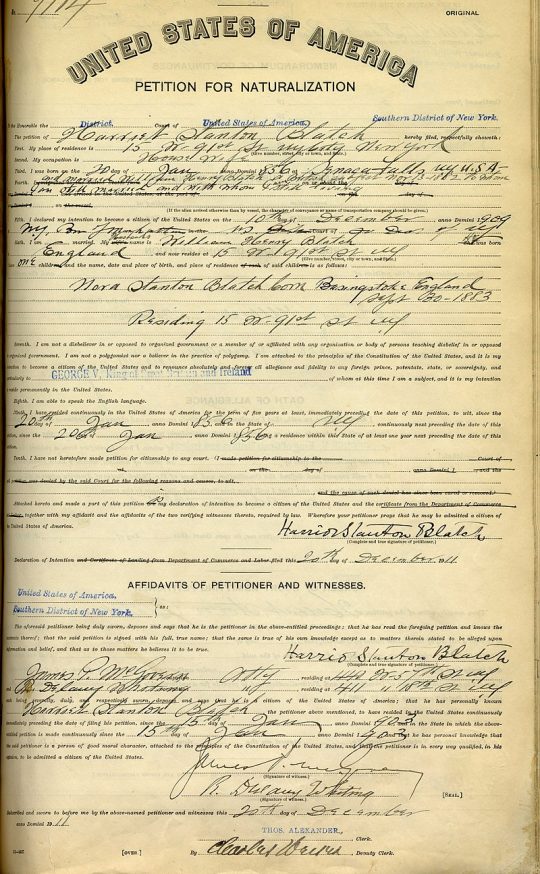 No. 9114 ORIGINAL
UNITED STATES OF AMERICA
PETITION FOR NATURALIZATION
To the Honorable the District Court of United States of America, Southern District of New York.
The petition of Harriot Stanton Blatch hereby filed, respectfully showeth:
First. My place of residence is 15 W-91st St NY City New York
(Give number, street, city or town, and State.)
Second. My occupation is House Wife
Third. I was born on the 20 day of Jan anno Domini 1856 at Seneca Falls NY U.S.A.
(If the alien arrived otherwise than by vessel, the character of conveyance or name of transportation company should be given.)
Fifth. I declared my intention to become a citizen of the United States on the 10th day of December anno Domini 1909
Sixth. I am married. My name is William Henry Blatch was born
England and now resides at 15 W-91st St NY
(Give number, street, city or town, and State.)
I have one child and the name, date and place of birth, and place of residence of said children is as follows:
Nora Stanton Blatch born Basingstoke England
Sept 30-1883
Residing 15 W-91st St NY
Seventh. I am not a disbeliever in or opposed to organized government or a member of or affiliated with any organization or body of persons teaching disbelief in or opposed
organized government. I am not a polygamist nor a believer in the practice of polygamy. I am attached to the principles of the Constitution of the United States, and it is my
intention to become a citizen of the United States and to renounce absolutely and forever all allegiance and fidelity to any foreign prince, potentate, state, or sovereignty, and
particularly to GEORGE V, King of Great Britain and Ireland of whom at this time I am a subject, and it is my intention
to reside permanently in the United States.
Eighth. I am able to speak the English language.
Ninth. I have resided continuously in the United States of America for the term of five years at least, immediately preceding the date of this petition, to wit, since the
20th day of Jan anno Domini 1856 and in the NY, continuously next preceding the date of this
petition, since the 20th day of Jan anno Domini 1856, being a residence within this State of at least one year next preceding the date of this
petition.
Tenth. I have not heretofore made petition for citizenship to any court. (I made petition for citizenship to the Court of
at on the day of anno Domini 1 and the
petition was denied by the said Court for the following reasons and causes, to wit,
and the cause of such denial has since been cured or removed.)
Attached hereto and made a part of this petition is my declaration of intention to become a citizen of the United States and the certificate from the Department of Commerce
and Labor, together with my affidavit and the affidavits of the two verifying witnesses thereto, required by law. Wherefore your petitioner prays that he may be admitted a citizen of
the United States of America.
Harriot Stanton Blatch
(Complete and true signature of petitioner.)
Declaration of Intention and Certificate of Landing from Department of Commerce and Labor filed this 20th day of December 1911
AFFIDAVITS OF PETITIONER AND WITNESSES.
United States of America,
Southern District of New York. ss:
The aforesaid petitioner being duly sworn, deposes and says that he is the petitioner in the above-entitled proceedings; that he has read the foregoing petition and knows the
contents thereof; that the said petition is signed with his full, true name; that the same is true of his own knowledge except as to matters therein stated to be alleged upon
information and belief, and that as to those matters he believes it to be true.
Harriot Stanton Blatch
(Complete and true signature of petitioner.)
James P. Atty, residing at W-57th St NY
and R. Delancy Whiting, residing at 411 W 18th St NY
each being severally, duly, and respectively sworn, deposes and says that he is a citizen of the United States of America; that he has personally known
Harriot Stanton Blatch the petitioner above mentioned, to have resided in the United States continuously
immediately preceding the date of filing his petition, since the 15th day of Jan anno Domini 1903 and in the State in which the above-
entitled petition is made continuously since the 15th day of Jan anno Domini 1903 and that he has personal knowledge that
the said petitioner is a person of good moral character, attached to the principles of the Constitution of the United States, and that the petitioner is in every way qualified, in his
opinion, to be admitted a citizen of the United States.
James P.
(Signature of witness.)
R. Delancy Whiting
(Signature of witness.)
[SEAL.]
Subscribed and sworn to before me by the above-named petitioner and witnesses this 20th day of December
anno Domini 1911
THOS. ALEXANDER, Clerk.
[OVER.] By Charles Weiser, Deputy Clerk.